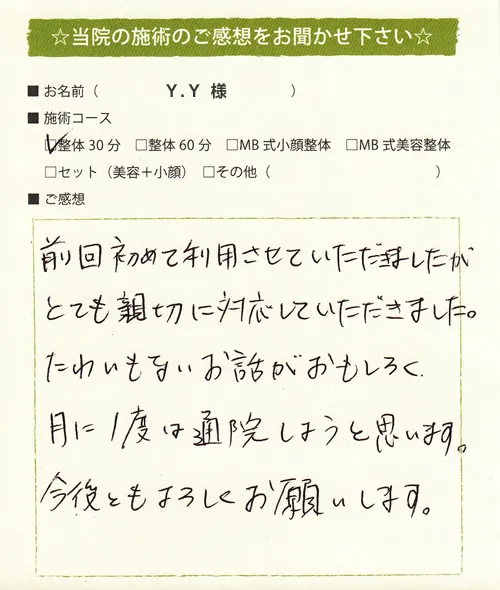 ☆当院の施術のご感想をお聞かせ下さい☆
■ お名前（ Y.Y 様 ）
■ 施術コース
☑整体30分 □整体60分 □MB式小顔整体 □MB式美容整体
□セット（美容＋小顔） □その他（ ）
■ ご感想
前回初めて利用させていただきましたが
とても親切に対応していただきました。
たわいもないお話がおもしろく、
月に1度は通院しようと思います。
今後ともよろしくお願いします。